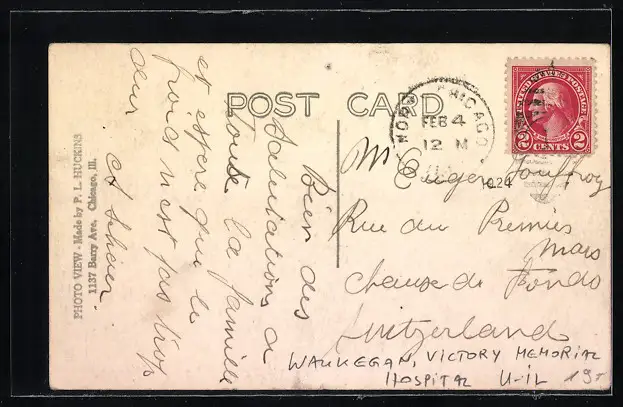 POST CARD
PHOTO VIEW - Made by P. L. HUCKINS
1137 Barry Ave. Chicago, Ill.
Bien des
Salutations a
toute la famille
et espere que le
froid n'est pas trop
dur
UNITED STATES POSTAGE
2 CENTS 2
CHICAGO
FEB 4
12 M
1024
Mr
Rue du Premier
Mars
Chaux de Fonds
Switzerland
WAUKEGAN, VICTORY MEMORIAL
HOSPITAL U-IL